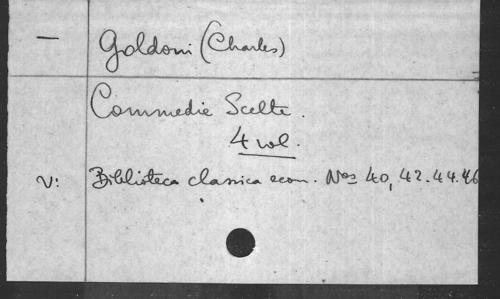 — Goldoni (Charles)
Commedie Scelte.
4 vol.
V: Biblioteca classica econ. Nos 40, 42. 44. 46